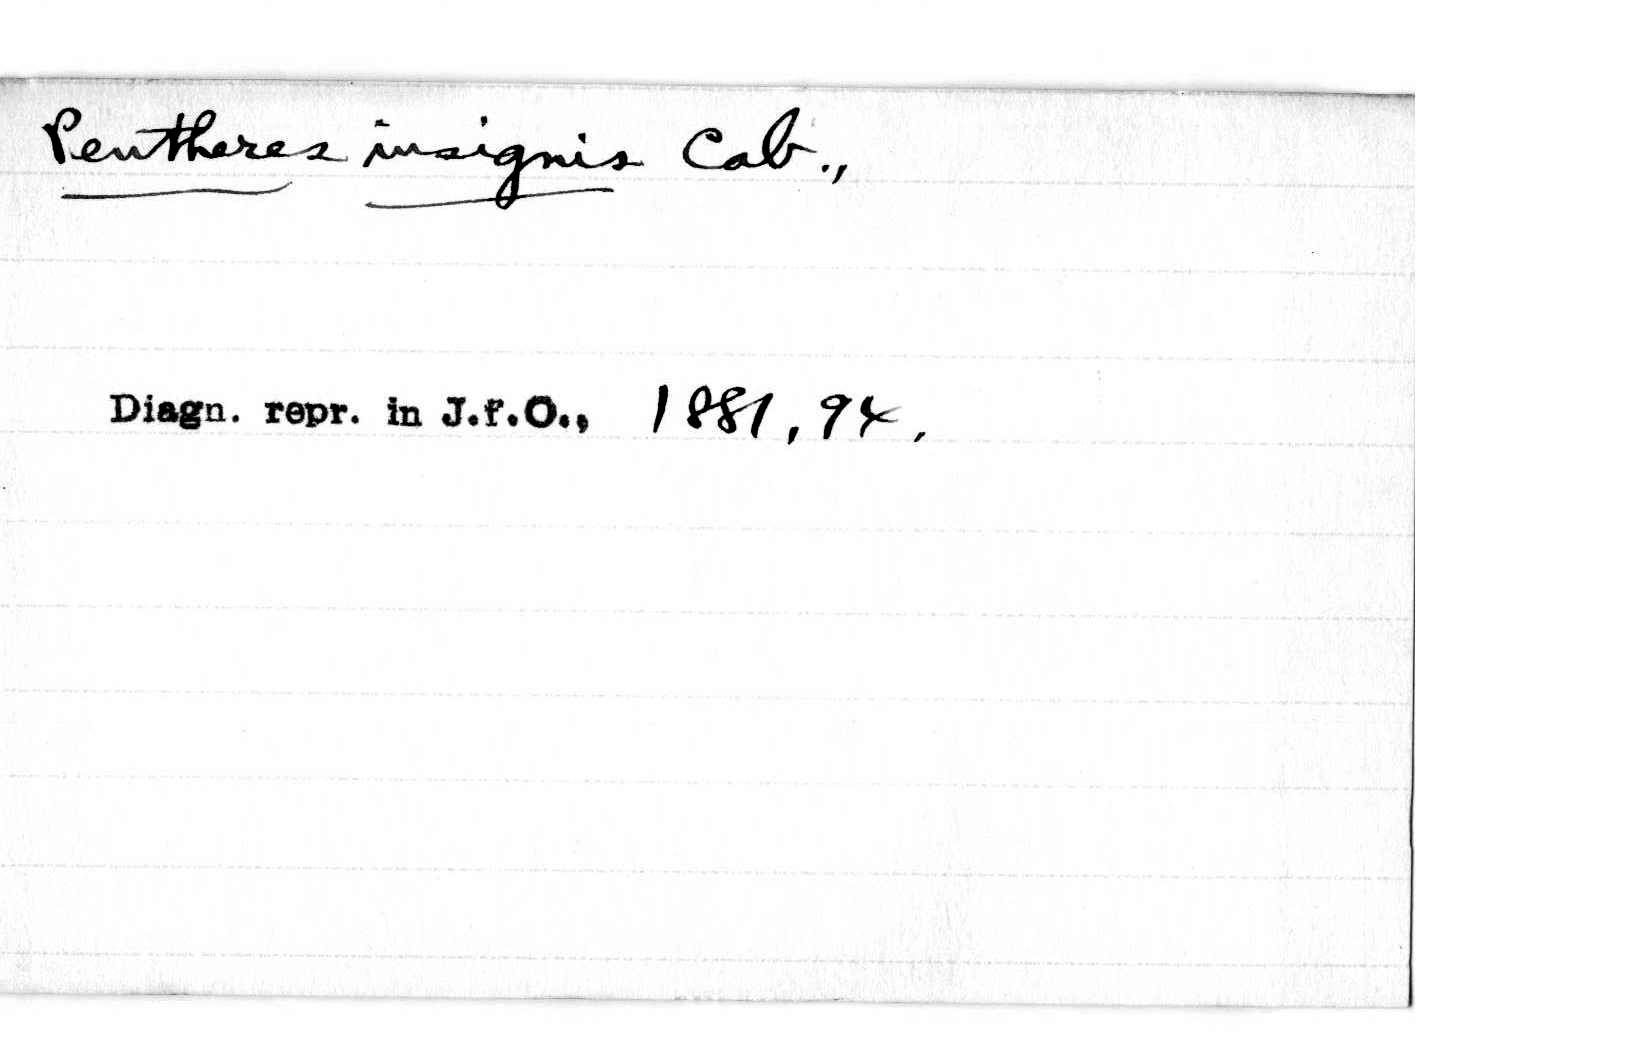 Pentheres insignis Cab.,
Diagn. repr. in J.f.O., 1881, 94.